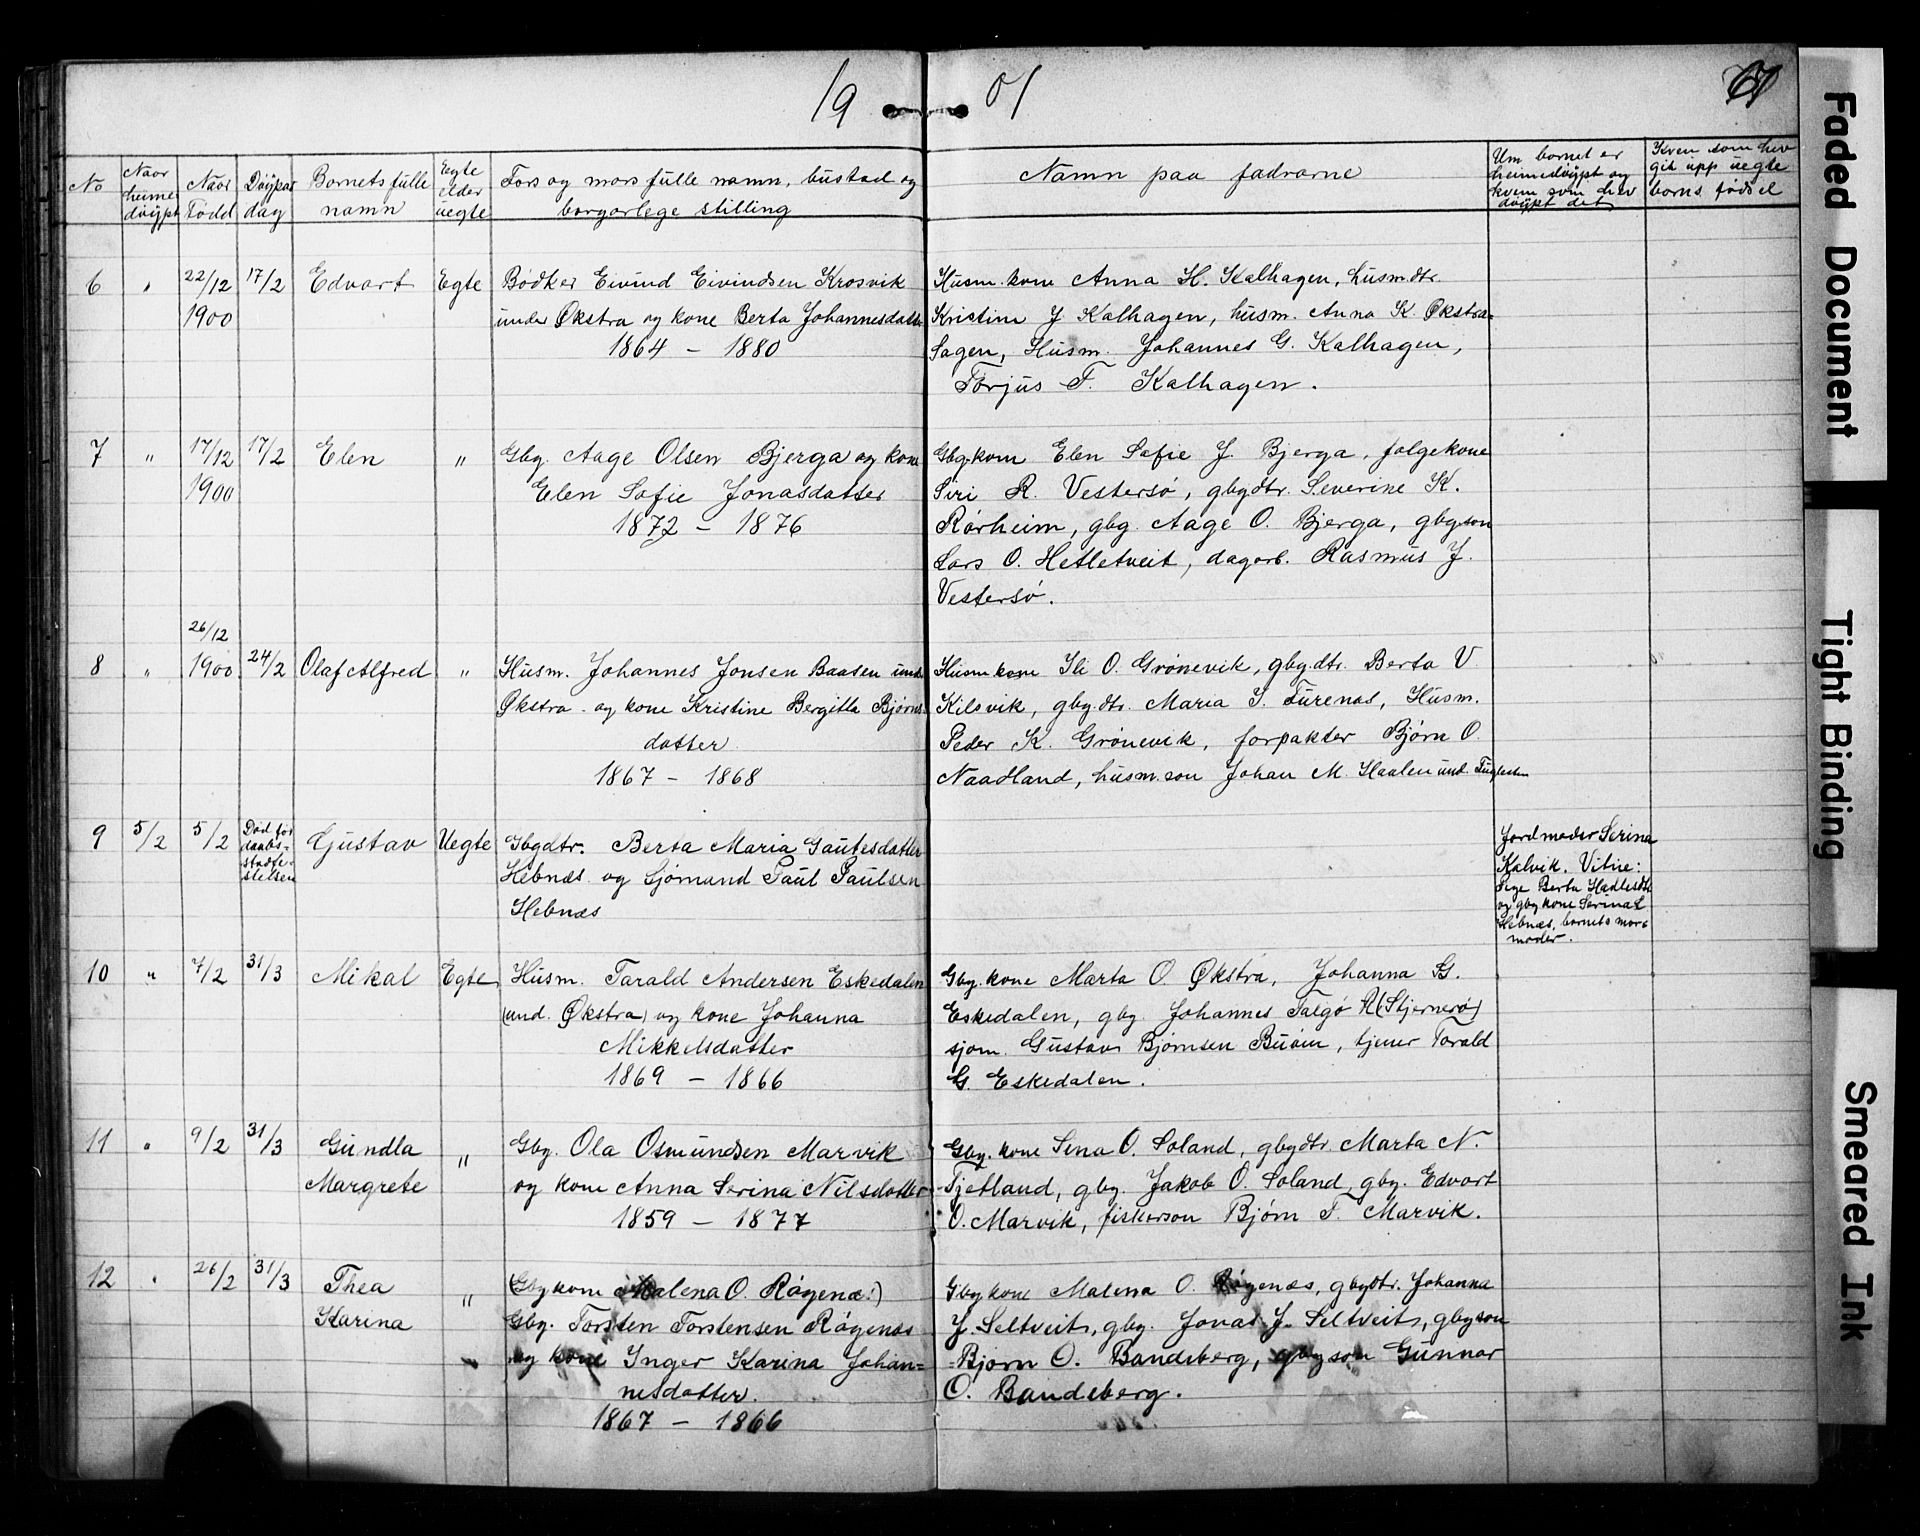 19 01
No
Naar heime-døypt
Naar Fødd
Døypar dag
Bornets fulle namn
Egte elder uegte
Fars og mors fulle namn, bustad og borgarlege stilling
Namn paa fadrarne
Um bornet er heimedøypt og kvem som hev døypt det
Kven som hev git upp uegte borns fødsel
6 " 22/12 1900 17/2 Edvart Egte
Bødker Eivind Eivindsen Krosvik
under Økstra og kone Berta Johannesdatter
1864 - 1880
Husm. kone Anna H. Kalhagen, husm.dtr.
Kristine J Kalhagen, husm. Anna K. Økstra-
Hagen, Husm. Johannes G. Kalhagen,
Torjus T. Kalhagen.
7 " 17/12 1900 17/2 Elen "
Gbg. Aage Olsen Bjerga og kone
Elen Sofie Jonasdatter
1872 - 1876
Gbg.kone Elen Sofie J. Bjerga, følgekone
Siri R. Vestersø, gbgdtr. Severine K.
Rørheim, gbg. Aage O. Bjerga, gbgson
Lars O. Hetletveit, dagarb. Rasmus J.
Vestersø.
8 " 26/12 1900 24/2 Olaf Alfred "
Husm. Johannes Jonsen Baasen und.
Økstra og kone Kristine Bergitta Bjørns-
datter
1867 - 1868
Husm kone Ili O. Grønevik, gbg.dtr. Berta V.
Kilavik, gbg.dtr. Maria I. Turenas, Husm.
Peder K. Grønevik, forpakter Bjørn O.
Naadland, husm.son Johan M. Haalen und.
9 5/2 5/2 Død før daabs-stadfe-stelsen Gustav Uegte
Gbgdtr. Berta Maria Gautesdatter
Hebnæs og Sjømand Paul Paulsen
Hebnæs
Jordmoder Serina
Kalvik. Vitne:
Pige Berta
og gbg kone Serina
Hebnæs, barnets mor-
moder.
10 " 7/2 31/3 Mikal Egte
Husm. Tarald Andersen Eskedalen
(und. Økstra) og kone Johanna
Mikkelsdatter
1869 - 1866
Gbg. kone Marta O. Økstra, Johanna G.
Eskedalen, gbg. Johannes Talgø R. (Stjernerø)
sjøm. Gustav Bjørnsen Buøin, tjener Tarald
G. Eskedalen.
11 " 9/2 31/3 Gundla Margrete "
Gbg. Ola Osmundsen Marvik
og kone Anna Serina Nilsdatter
1859 - 1877
Gbg. kone Sena O. Soland, gbgdtr. Marta N.
Tjetland, gbg. Jakob O. Soland, gbg. Edvart
O. Marvik, fiskerson Bjørn T. Marvik.
12 " 26/2 31/3 Thea Karina "
(Gbgkone Malena O. Røgenæs)
Gbg. Torsten Torstensen Røgenæs
og kone Inger Karina Johan-
nesdatter.
1867 - 1866
Gbgkone Malena O. Røgenæs, gbgdtr. Johanna
J. Seltveit, gbg. Jonas J. Seltveit, gbgson
Bjørn O. Bandeberg, gbgson Gunnar
O. Bandeberg.
Faded Document
Tight Binding
Smeared Ink